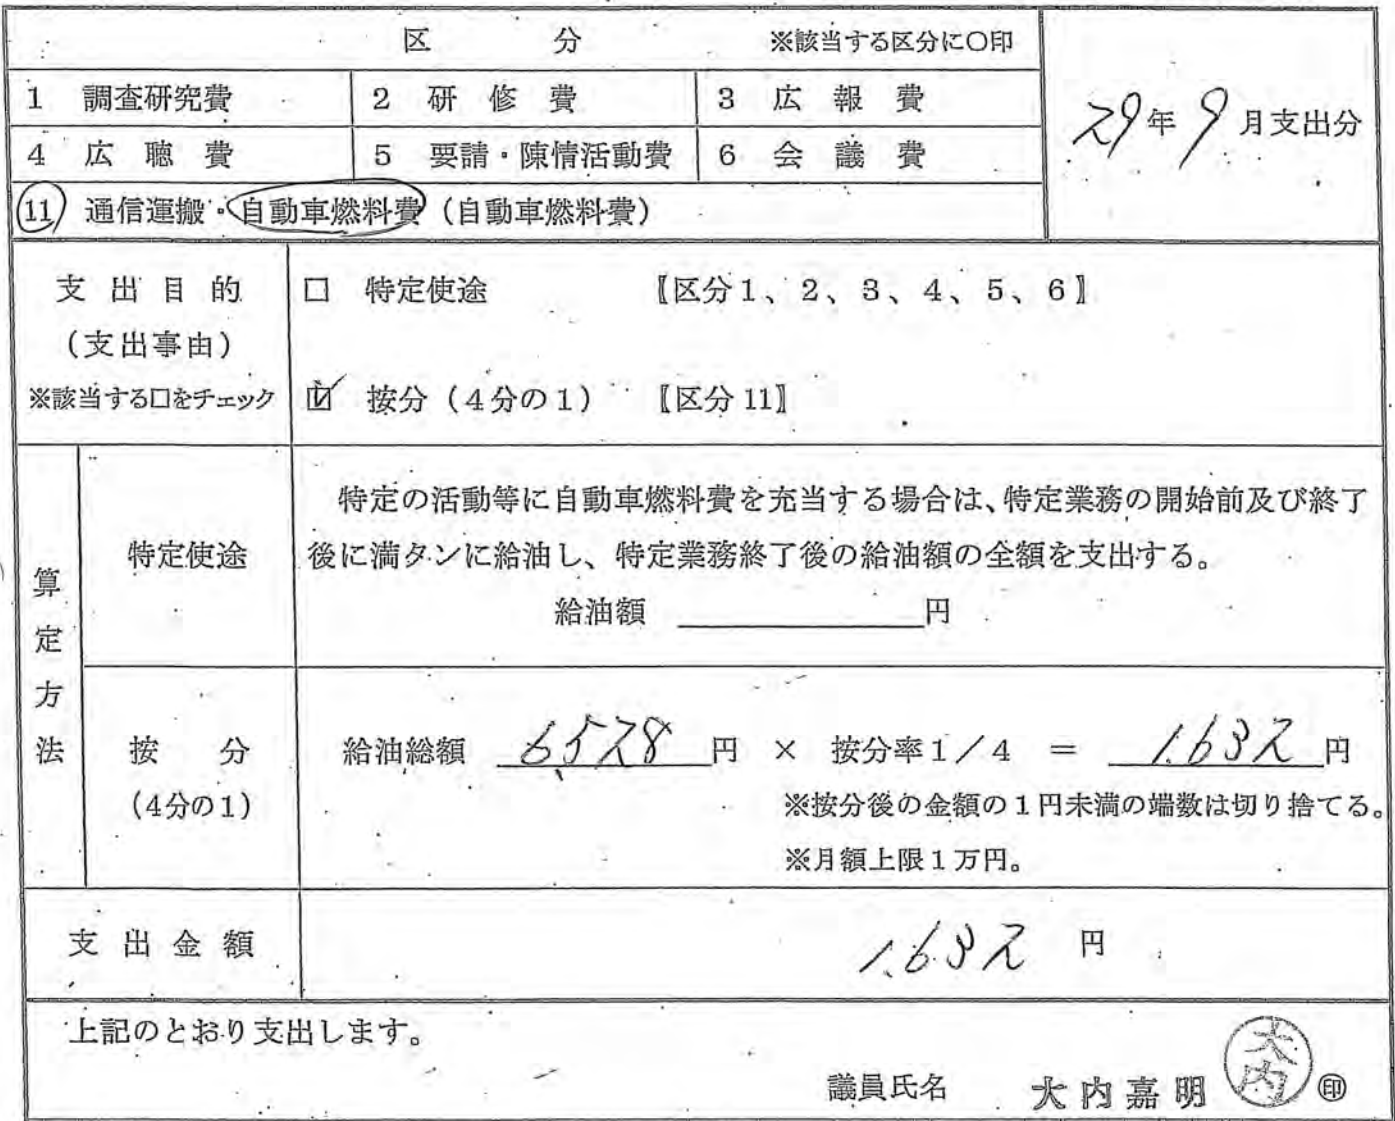 区 分 ※該当する区分に○印
1 調査研究費 2 研修費 3 広報費
29年9月支出分
4 広聴費 5 要請・陳情活動費 6 会議費
11 通信運搬・自動車燃料費（自動車燃料費）
支出目的
（支出事由）
※該当する□をチェック
□ 特定使途 〖区分1、2、3、4、5、6〗
☑ 按分（4分の1） 〖区分11〗
算定方法
特定使途
特定の活動等に自動車燃料費を充当する場合は、特定業務の開始前及び終了
後に満タンに給油し、特定業務終了後の給油額の全額を支出する。
給油額 円
按分
（4分の1）
給油総額 6,528円 × 按分率1／4 ＝ 1.632円
※按分後の金額の1円未満の端数は切り捨てる。
※月額上限1万円。
支出金額 1.632 円
上記のとおり支出します。
議員氏名 大内嘉明 ㊞
大内